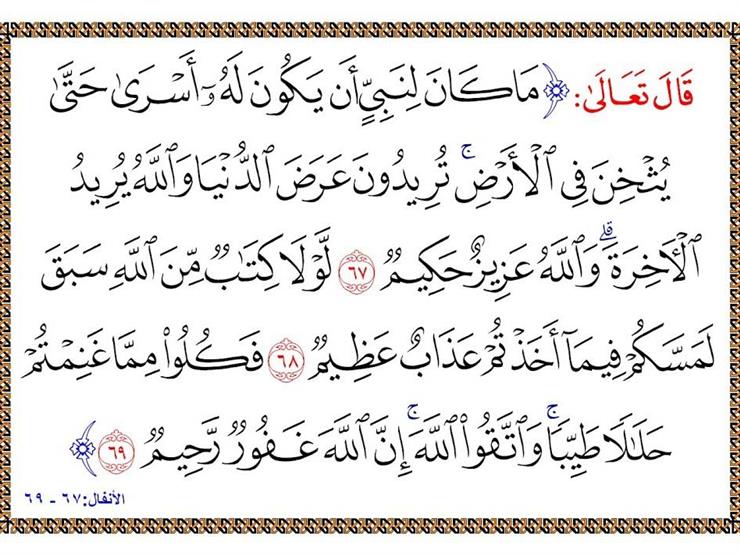 قَالَ تَعَالَىٰ: ﴿مَا كَانَ لِنَبِيٍّ أَن يَكُونَ لَهُۥٓ أَسۡرَىٰ حَتَّىٰ
يُثۡخِنَ فِي ٱلۡأَرۡضِۚ تُرِيدُونَ عَرَضَ ٱلدُّنۡيَا وَٱللَّهُ يُرِيدُ
ٱلۡأٓخِرَةَۗ وَٱللَّهُ عَزِيزٌ حَكِيمٞ ٦٧ لَّوۡلَا كِتَٰبٞ مِّنَ ٱللَّهِ سَبَقَ
لَمَسَّكُمۡ فِيمَآ أَخَذۡتُمۡ عَذَابٌ عَظِيمٞ ٦٨ فَكُلُواْ مِمَّا غَنِمۡتُمۡ
حَلَٰلٗا طَيِّبٗاۚ وَٱتَّقُواْ ٱللَّهَۚ إِنَّ ٱللَّهَ غَفُورٞ رَّحِيمٞ ٦٩﴾
الأنفال: ٦٧ - ٦٩